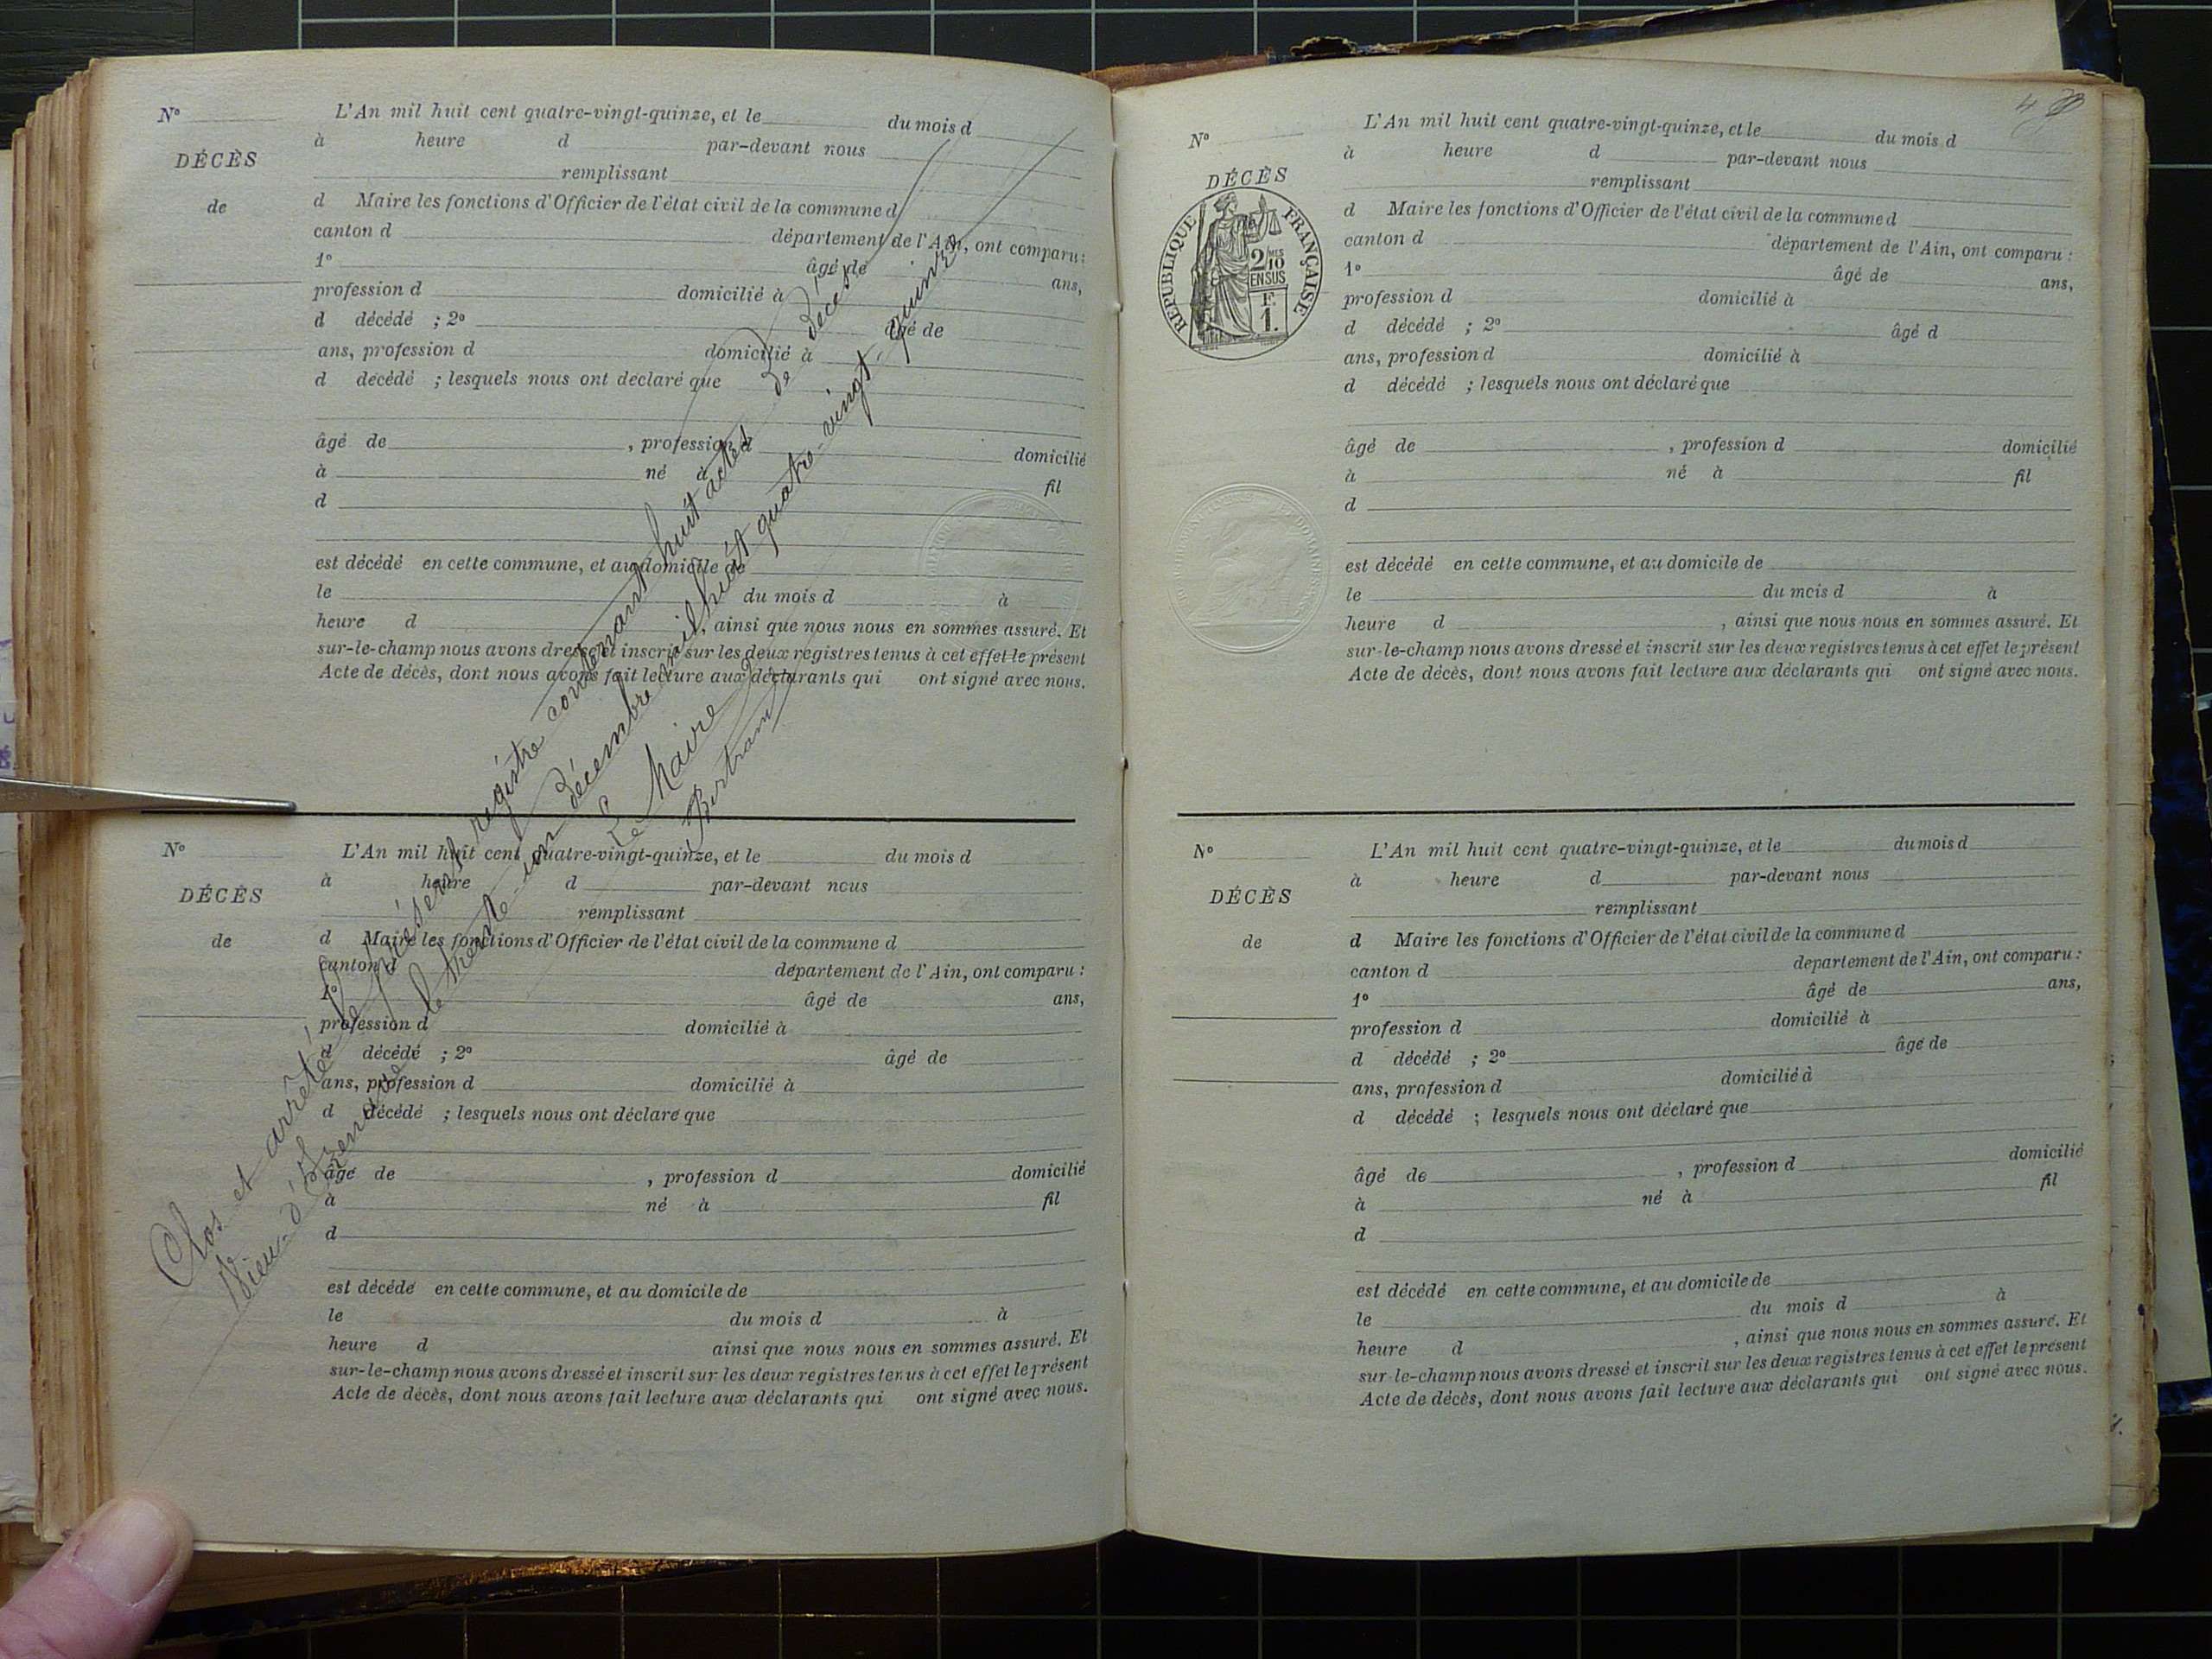 N°
DÉCÈS
de
L'An mil huit cent quatre-vingt-quinze, et le du mois d
à heure d par-devant nous
remplissant
d Maire les fonctions d'Officier de l'état civil de la commune d
canton d département de l'Ain, ont comparu :
1° âgé de ans,
profession d domicilié à
d décédé ; 2° âgé de
ans, profession d domicilié à
d décédé ; lesquels nous ont déclaré que
âgé de , profession d domicilié
à né à fil
d
est décédé en cette commune, et au domicile de
le du mois d à
heure d , ainsi que nous nous en sommes assuré. Et
sur-le-champ nous avons dressé et inscrit sur les deux registres tenus à cet effet le présent
Acte de décès, dont nous avons fait lecture aux déclarants qui ont signé avec nous.
N°
DÉCÈS
de
L'An mil huit cent quatre-vingt-quinze, et le du mois d
à heure d par-devant nous
remplissant
d Maire les fonctions d'Officier de l'état civil de la commune d
canton d département de l'Ain, ont comparu :
1° âgé de ans,
profession d domicilié à
d décédé ; 2° âgé de
ans, profession d domicilié à
d décédé ; lesquels nous ont déclaré que
âgé de , profession d domicilié
à né à fil
d
est décédé en cette commune, et au domicile de
le du mois d à
heure d ainsi que nous nous en sommes assuré. Et
sur-le-champ nous avons dressé et inscrit sur les deux registres tenus à cet effet le présent
Acte de décès, dont nous avons fait lecture aux déclarants qui ont signé avec nous.
Clos et arrêté le présent registre contenant huit actes de décès
Vieu-d'Izenave le trente-un décembre mil huit quatre-vingt-quinze
Le Maire
Bertrand
N°
DÉCÈS
RÉPUBLIQUE FRANÇAISE
2 MES
10
EN SUS
F.
1.
L'An mil huit cent quatre-vingt-quinze, et le du mois d
à heure d par-devant nous
remplissant
d Maire les fonctions d'Officier de l'état civil de la commune d
canton d département de l'Ain, ont comparu :
1° âgé de ans,
profession d domicilié à
d décédé ; 2° âgé d
ans, profession d domicilié à
d décédé ; lesquels nous ont déclaré que
âgé de , profession d domicilié
à né à fil
d
est décédé en cette commune, et au domicile de
le du mois d à
heure d , ainsi que nous nous en sommes assuré. Et
sur-le-champ nous avons dressé et inscrit sur les deux registres tenus à cet effet le présent
Acte de décès, dont nous avons fait lecture aux déclarants qui ont signé avec nous.
N°
DÉCÈS
de
L'An mil huit cent quatre-vingt-quinze, et le du mois d
à heure d par-devant nous
remplissant
d Maire les fonctions d'Officier de l'état civil de la commune d
canton d departement de l'Ain, ont comparu :
1° âgé de ans,
profession d domicilié à
d décédé ; 2° âgé de
ans, profession d domicilié à
d décédé ; lesquels nous ont déclaré que
âgé de , profession d domicilié
à né à fil
d
est décédé en cette commune, et au domicile de
le du mois d à
heure d , ainsi que nous nous en sommes assuré. Et
sur-le-champ nous avons dressé et inscrit sur les deux registres tenus à cet effet le présent
Acte de décès, dont nous avons fait lecture aux déclarants qui ont signé avec nous.